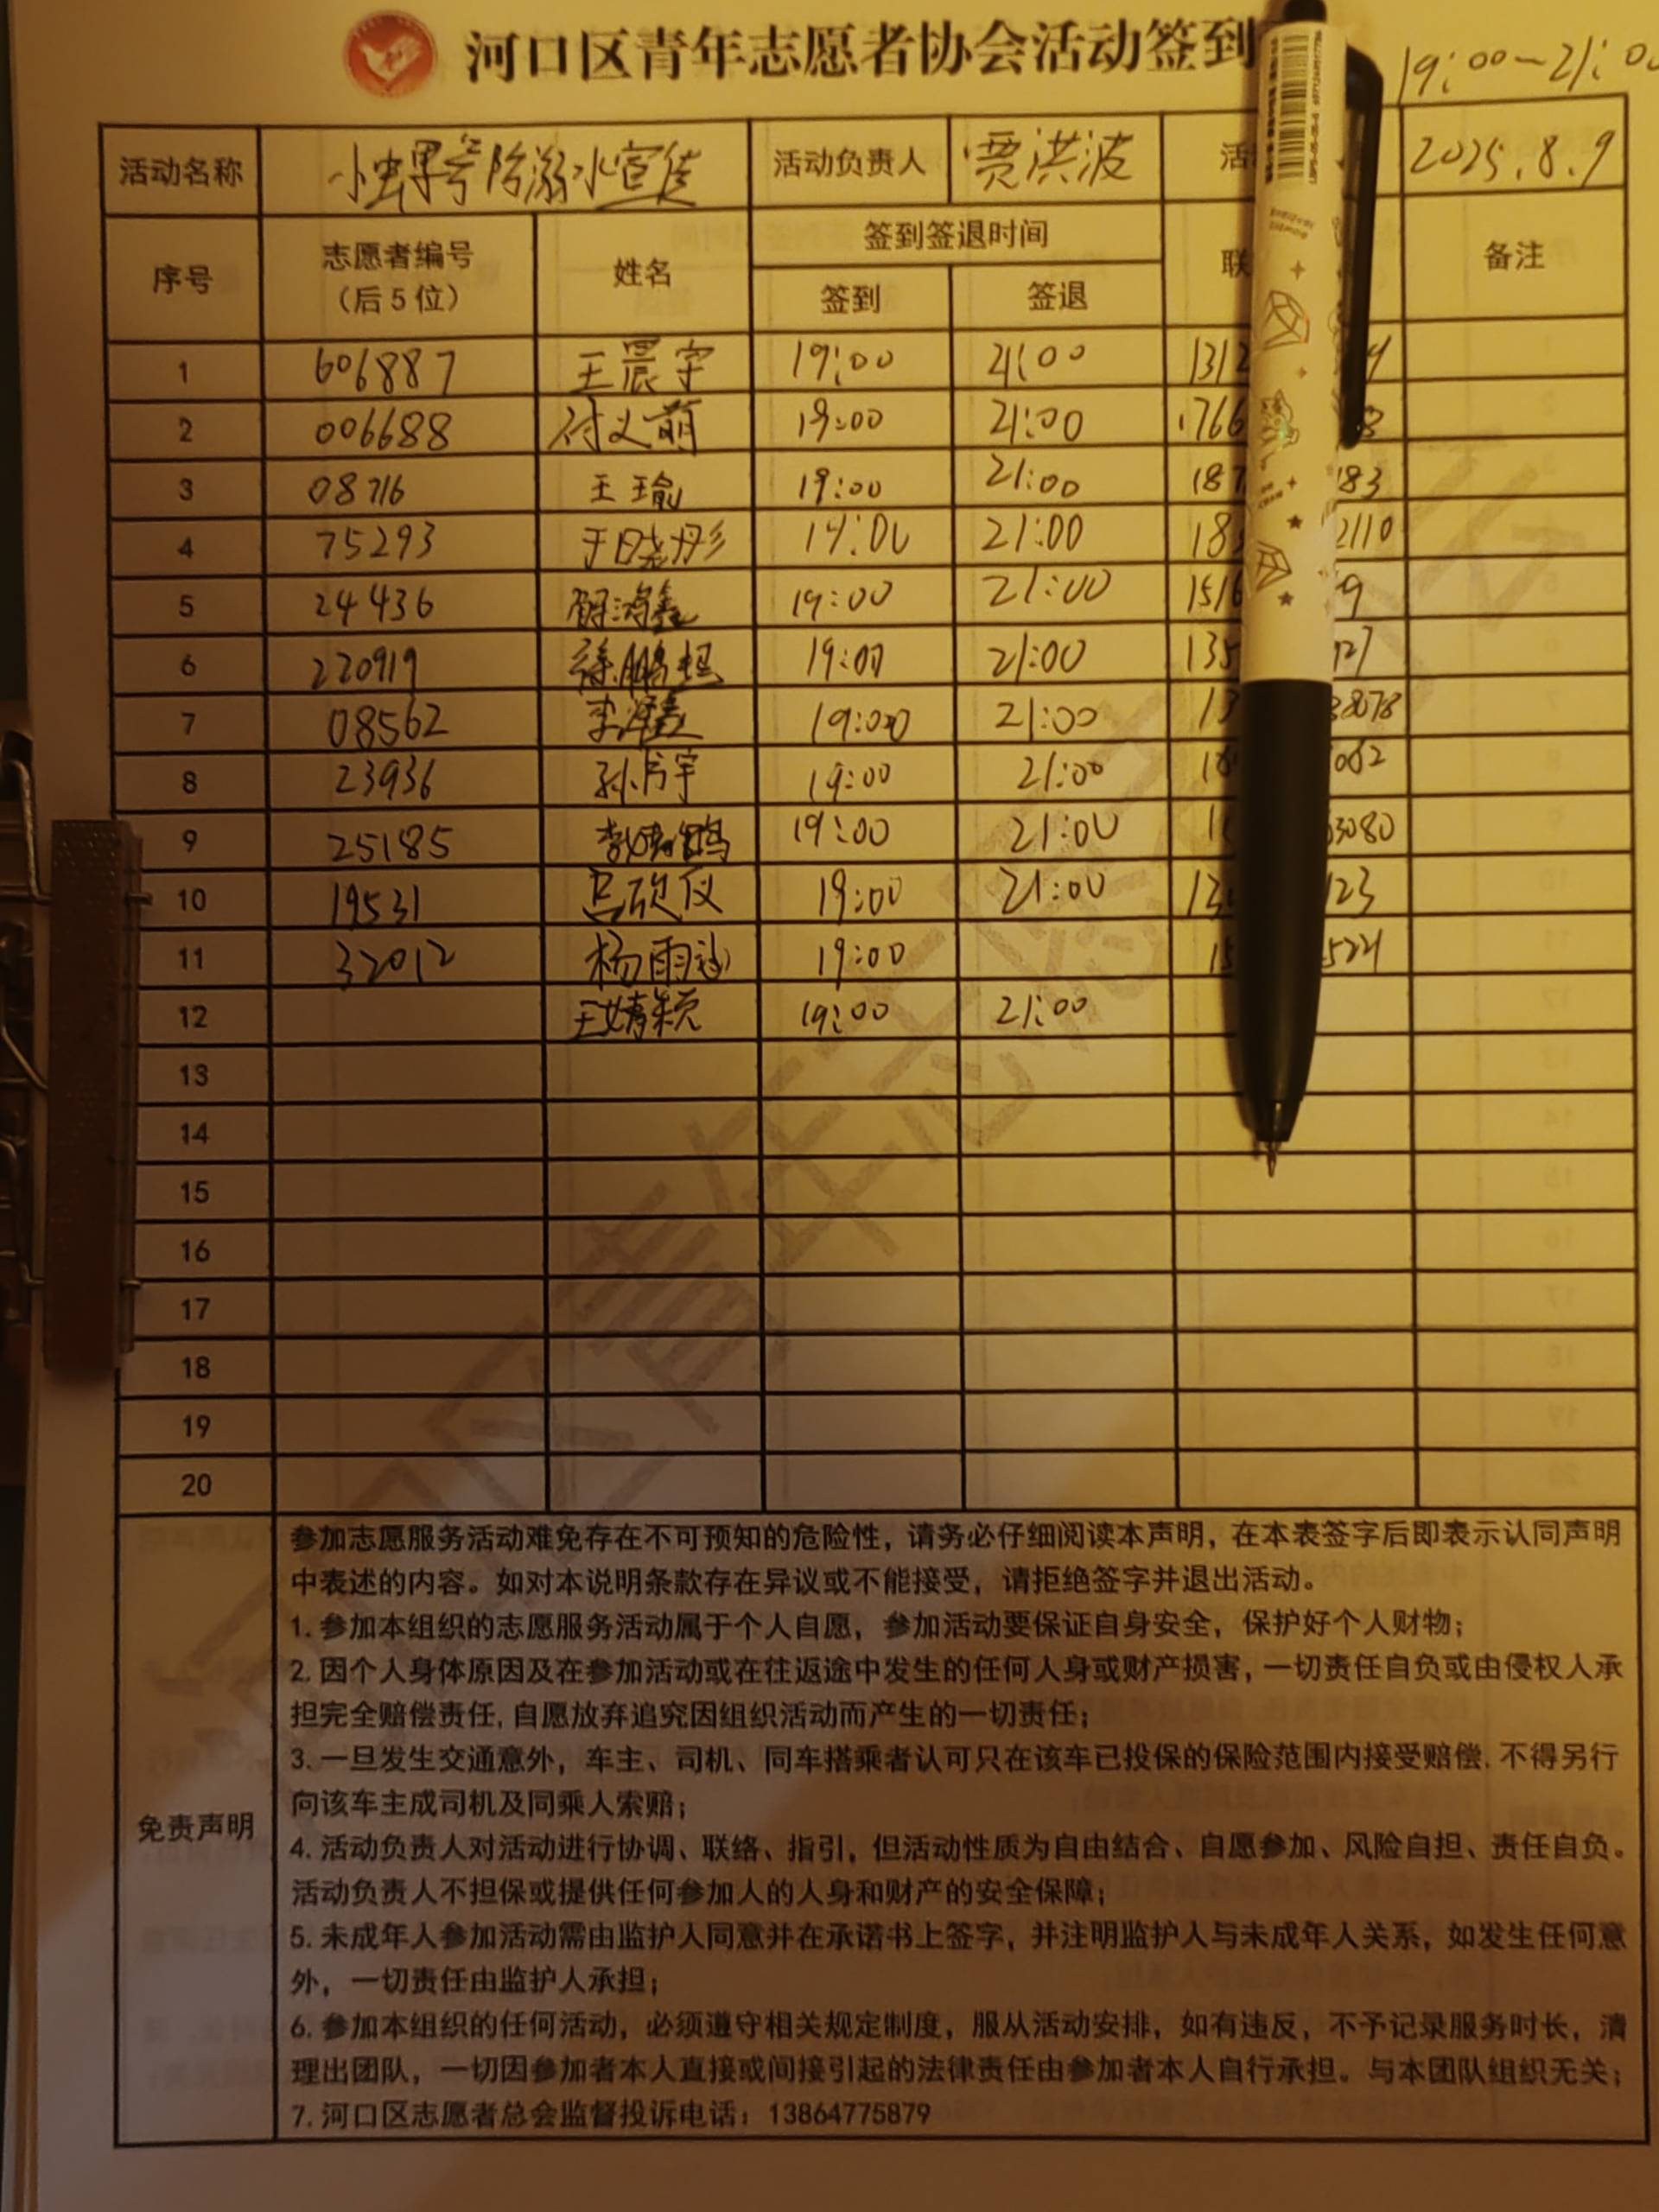 河口区青年志愿者协会活动签到
19:00-21:00
活动名称 防溺水宣传 活动负责人 贾洪波 2025.8.9
序号 志愿者编号 姓名 签到签退时间 联 备注
(后5位) 签到 签退
1 606887 王晨宇 19:00 21:00 1312
2 006688 付义萌 19:00 21:00
3 08716 王瑜 19:00 21:00 187 183
4 75293 于晓彤 19:00 21:00 183 2110
5 24436 19:00 21:00 1516 9
6 220919 徐鹏 19:00 21:00 135
7 08562 李 19:00 21:00 13 88078
8 23936 孙 宇 19:00 21:00 062
9 25185 19:00 21:00 3080
10 19531 仪 19:00 21:00 123
11 32012 杨雨 19:00 15 5221
12 王婧颖 19:00 21:00
13
14
15
16
17
18
19
20
免责声明
参加志愿服务活动难免存在不可预知的危险性，请务必仔细阅读本声明，在本表签字后即表示认同声明
中表述的内容。如对本说明条款存在异议或不能接受，请拒绝签字并退出活动。
1. 参加本组织的志愿服务活动属于个人自愿，参加活动要保证自身安全，保护好个人财物；
2. 因个人身体原因及在参加活动或在往返途中发生的任何人身或财产损害，一切责任自负或由侵权人承
担完全赔偿责任, 自愿放弃追究因组织活动而产生的一切责任；
3. 一旦发生交通意外，车主、司机、同车搭乘者认可只在该车已投保的保险范围内接受赔偿, 不得另行
向该车主成司机及同乘人索赔；
4. 活动负责人对活动进行协调、联络、指引，但活动性质为自由结合、自愿参加、风险自担、责任自负。
活动负责人不担保或提供任何参加人的人身和财产的安全保障；
5. 未成年人参加活动需由监护人同意并在承诺书上签字，并注明监护人与未成年人关系，如发生任何意
外，一切责任由监护人承担；
6. 参加本组织的任何活动，必须遵守相关规定制度，服从活动安排，如有违反，不予记录服务时长，清
理出团队，一切因参加者本人直接或间接引起的法律责任由参加者本人自行承担。与本团队组织无关；
7. 河口区志愿者总会监督投诉电话：13864775879